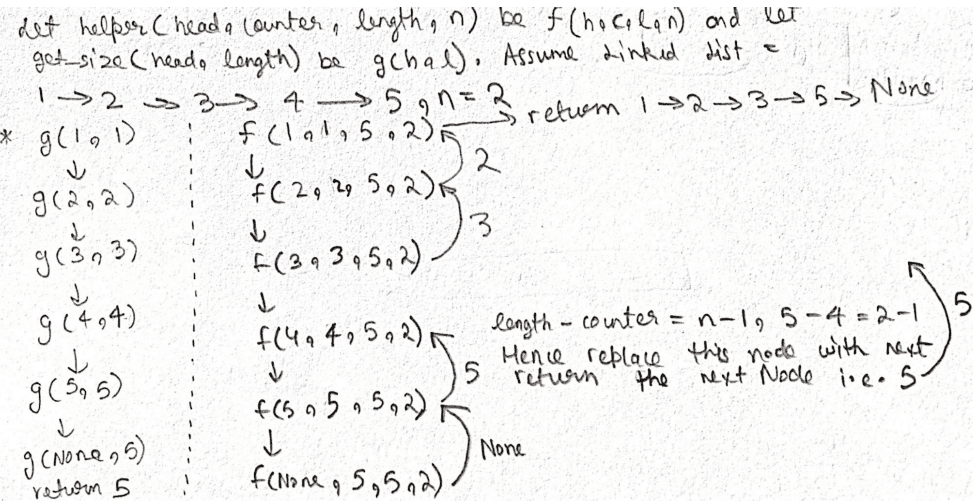 Let helper(head, counter, length, n) be f(h,c,l,n) and let
get_size(head, length) be g(h,l). Assume Linked List =
1 → 2 → 3 → 4 → 5, n = 2
* g(1, 1)
↓
g(2, 2)
↓
g(3, 3)
↓
g(4, 4)
↓
g(5, 5)
↓
g(None, 5)
return 5
f(1, 1, 5, 2) → return 1 → 2 → 3 → 5 → None
↓
2
f(2, 2, 5, 2)
↓
3
f(3, 3, 5, 2)
↓
f(4, 4, 5, 2)
↓
5
f(5, 5, 5, 2)
↓
None
f(None, 5, 5, 2)
length - counter = n-1, 5-4 = 2-1
Hence replace this node with next
return the next Node i.e. 5
5